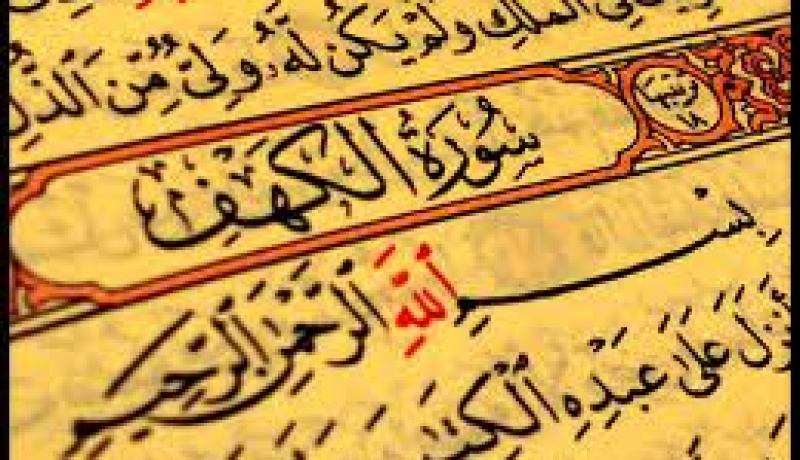 ٱلْمُلْكِ وَلَمْ يَكُن لَّهُۥ وَلِىٌّ مِّنَ ٱلذُّلِّ
سُورَةُ الكَهْفِ
١٨
بِسْمِ ٱللَّهِ ٱلرَّحْمَٰنِ ٱلرَّحِيمِ
أَنزَلَ عَلَىٰ عَبْدِهِ ٱلْكِتَٰ